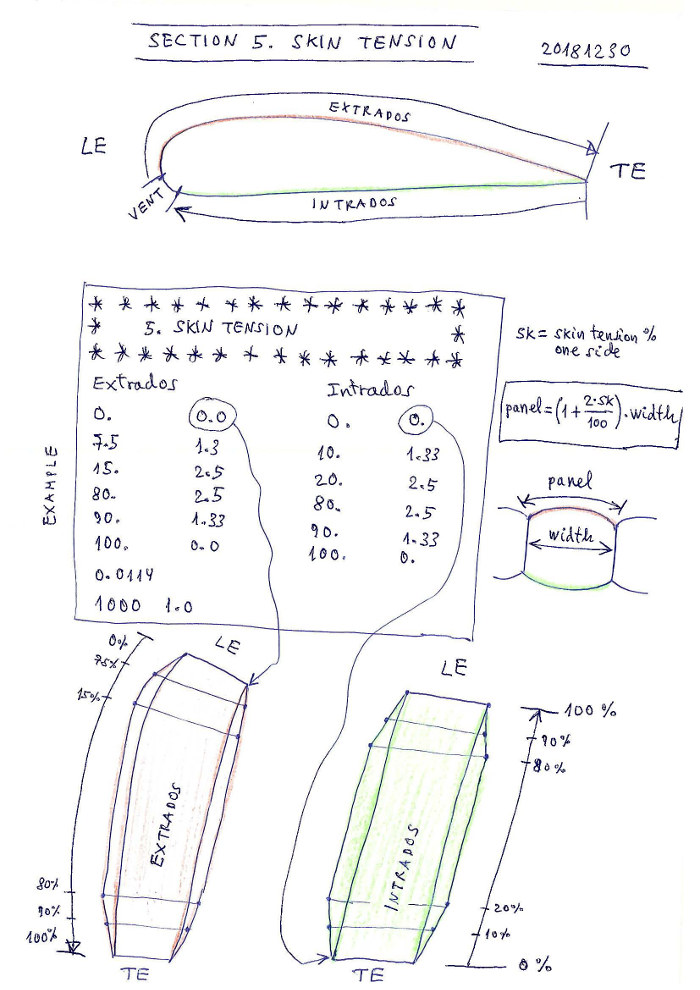 SECTION 5. SKIN TENSION
20181230
EXTRADOS
LE
TE
VENT
INTRADOS
* * * * * * * * * * * * * * * *
* 5. SKIN TENSION *
* * * * * * * * * * * * * * *
Extrados Intrados
0. 0.0 0. 0.
7.5 1.3 10. 1.33
15. 2.5 20. 2.5
80. 2.5 80. 2.5
90. 1.33 90. 1.33
100. 0.0 100. 0.
0.0114
1000 1.0
EXAMPLE
SK = skin tension %
one side
panel = (1 + 2·SK/100) · width
panel
width
0%
75%
15%
LE
EXTRADOS
80%
90%
100%
TE
LE
100%
90%
80%
INTRADOS
20%
10%
0%
TE